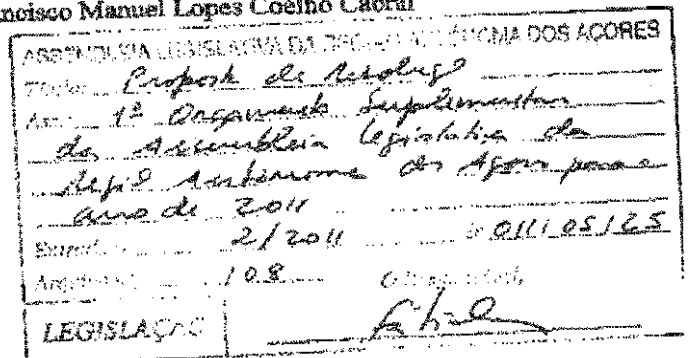 ncisco Manuel Lopes Coelho Cabral
ASSEMBLEIA LEGISLATIVA DA REGIÃO AUTÓNOMA DOS AÇORES
Proposta de Resolução
Ass.: 1º Orçamento Suplementar
da Assembleia Legislativa da
Região Autónoma dos Açores para o
ano de 2011
2/2011 011/05/25
108
LEGISLAÇÃO